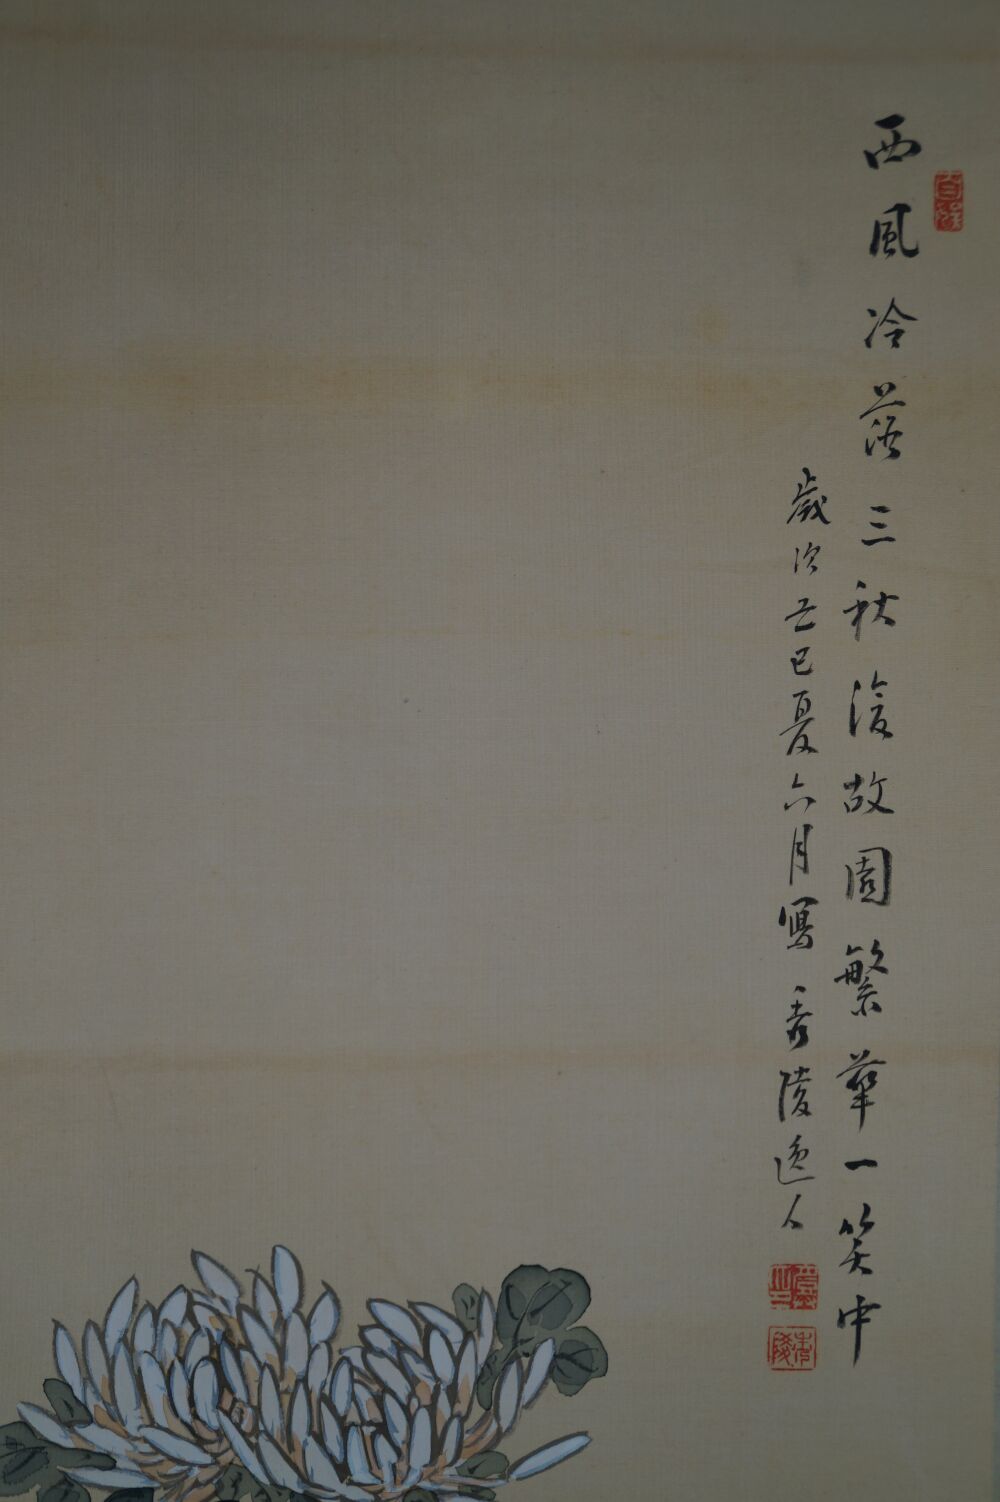 西風冷落三秋後故園繁華一笑中
歲次己巳夏六月寫 秀陵逸人